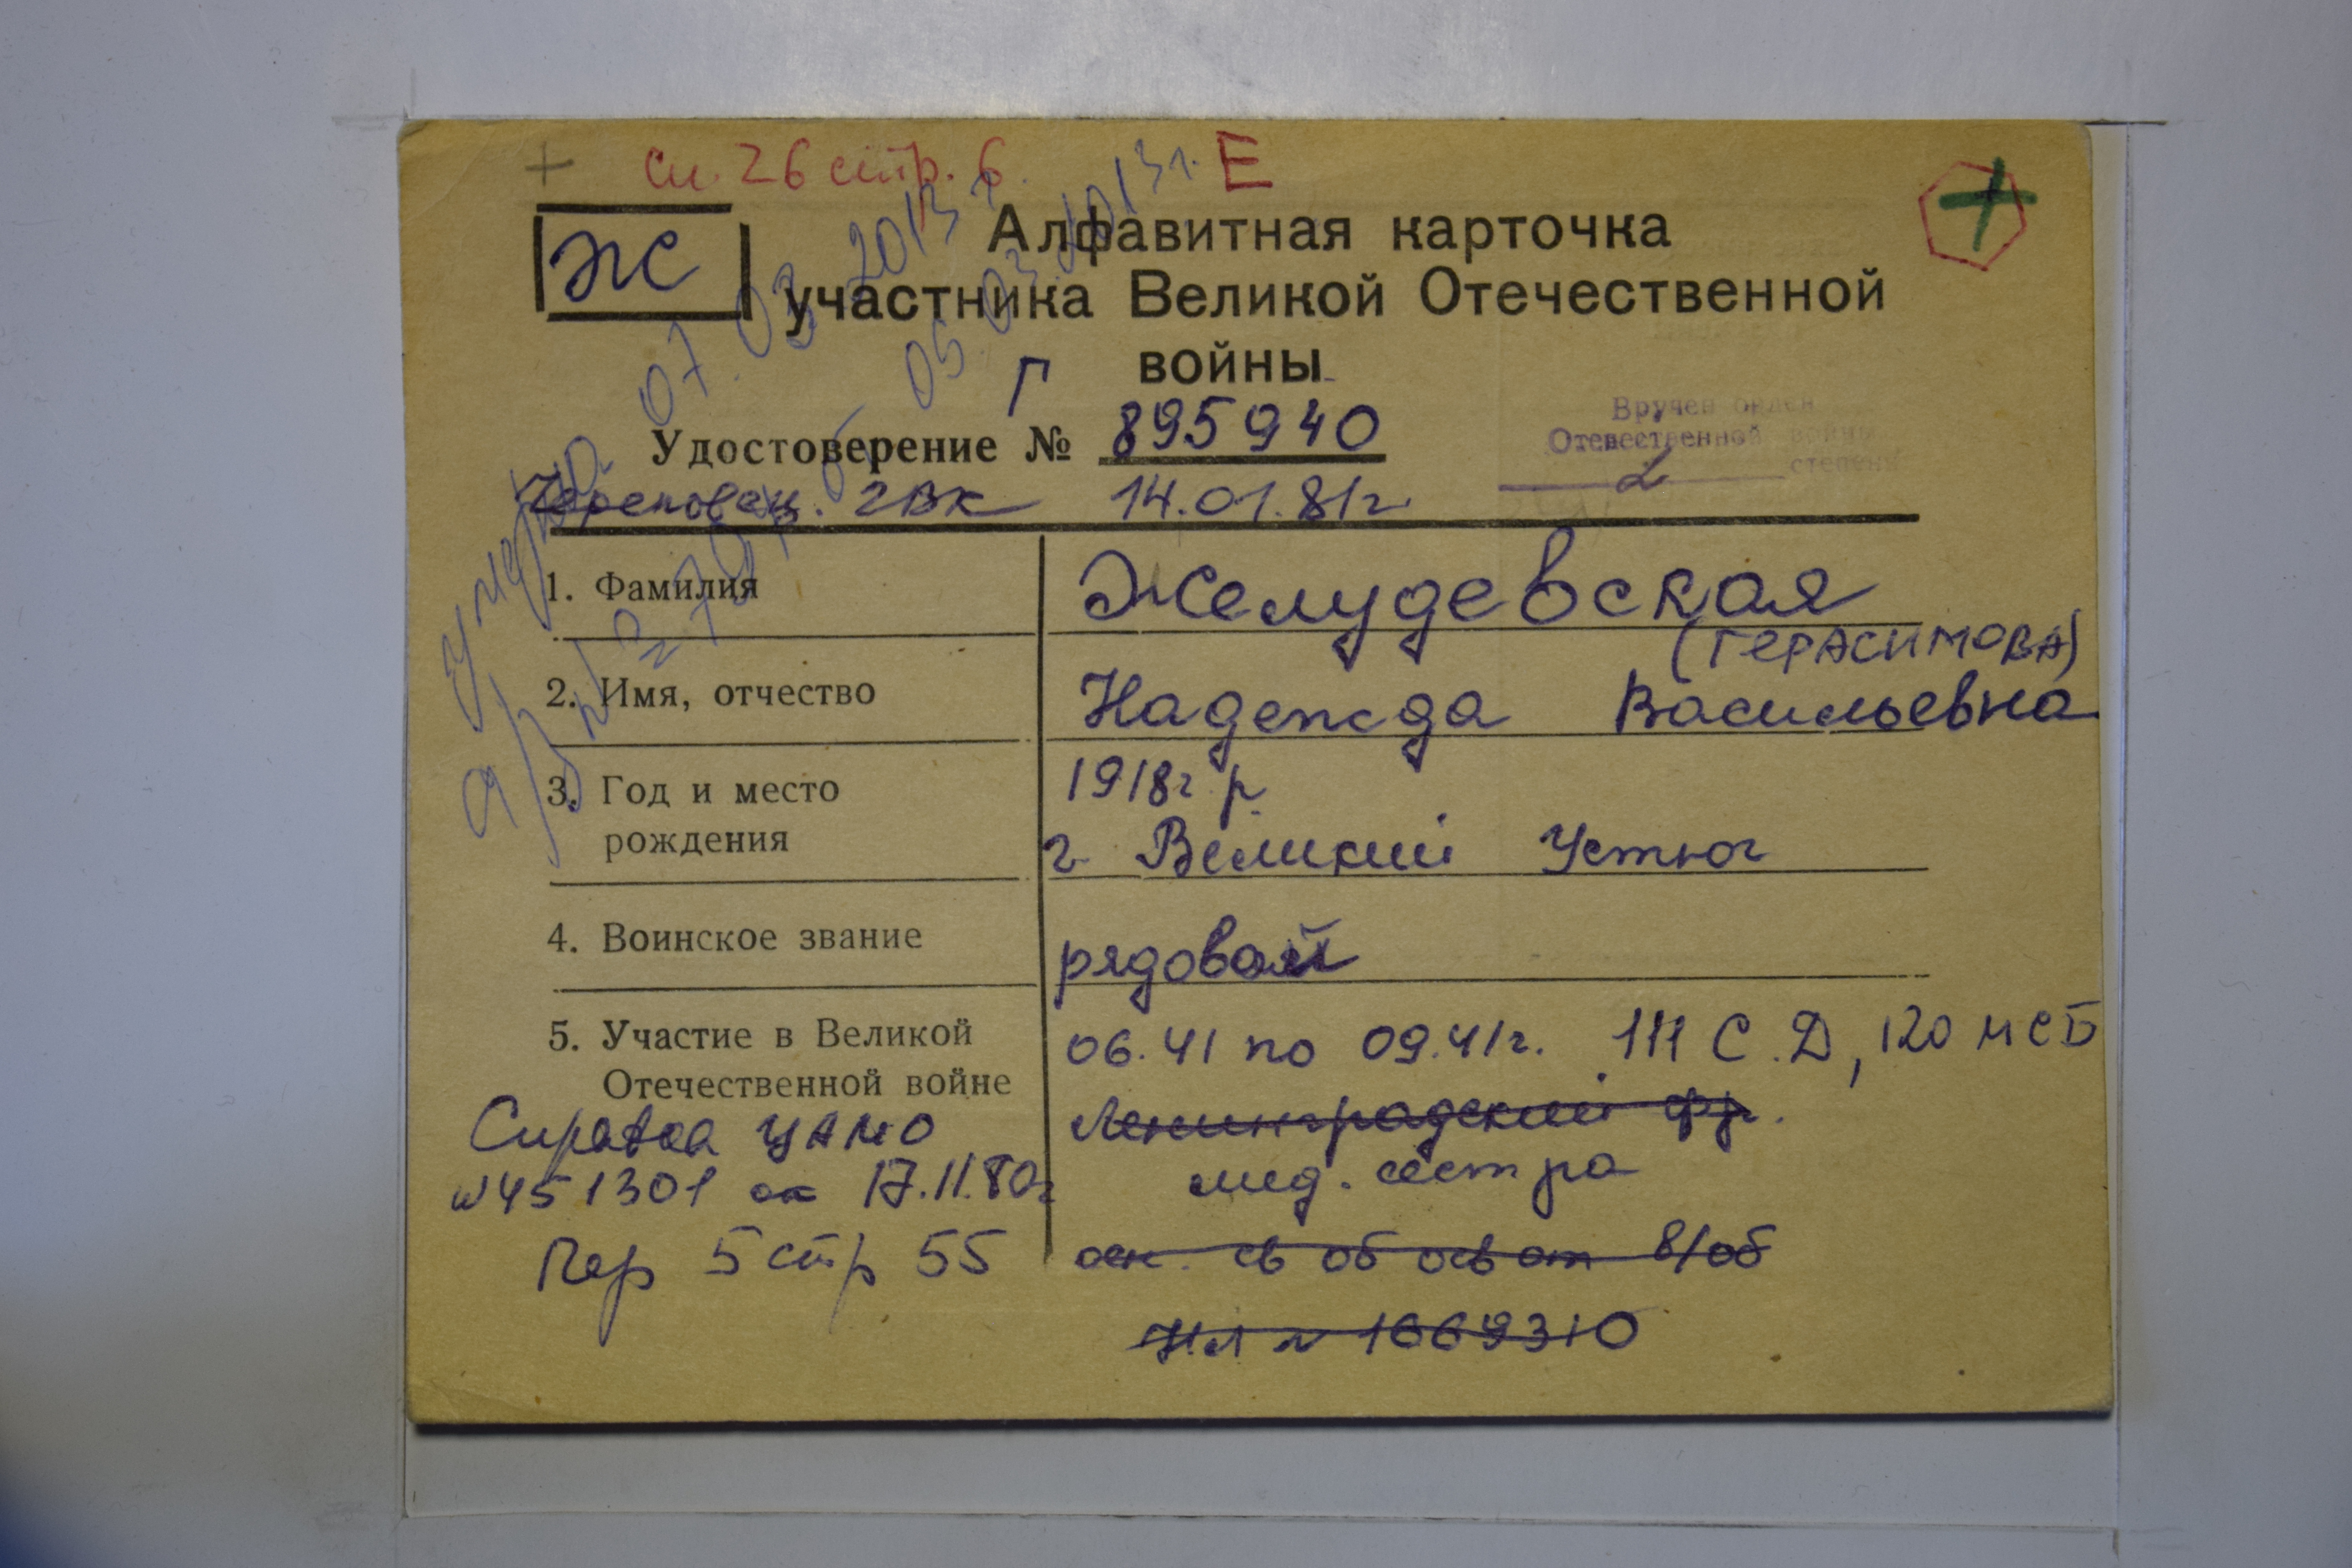 + сп. 26 стр. 6 Е
Ж
Алфавитная карточка
участника Великой Отечественной
войны
Г
Удостоверение № 895940
Вручен орден
Отечественной войны
2 степени
Череповец. ГВК 14.01.81г
умерла 07.03.2013г
05.03.2013г.
1. Фамилия Желудевская
(ГЕРАСИМОВА)
2. Имя, отчество Надежда Васильевна
3. Год и место 1918г.р.
рождения г. Великий Устюг
4. Воинское звание рядовой
5. Участие в Великой 06.41 по 09.41г. 111 С.Д, 120 МСБ
Отечественной войне Ленинградский фр.
мед. сестра
Справка ЦАМО
№451301 от 17.11.80г
Пер 5 стр 55
осн. св об осв от в/об
НЛ № 1669310